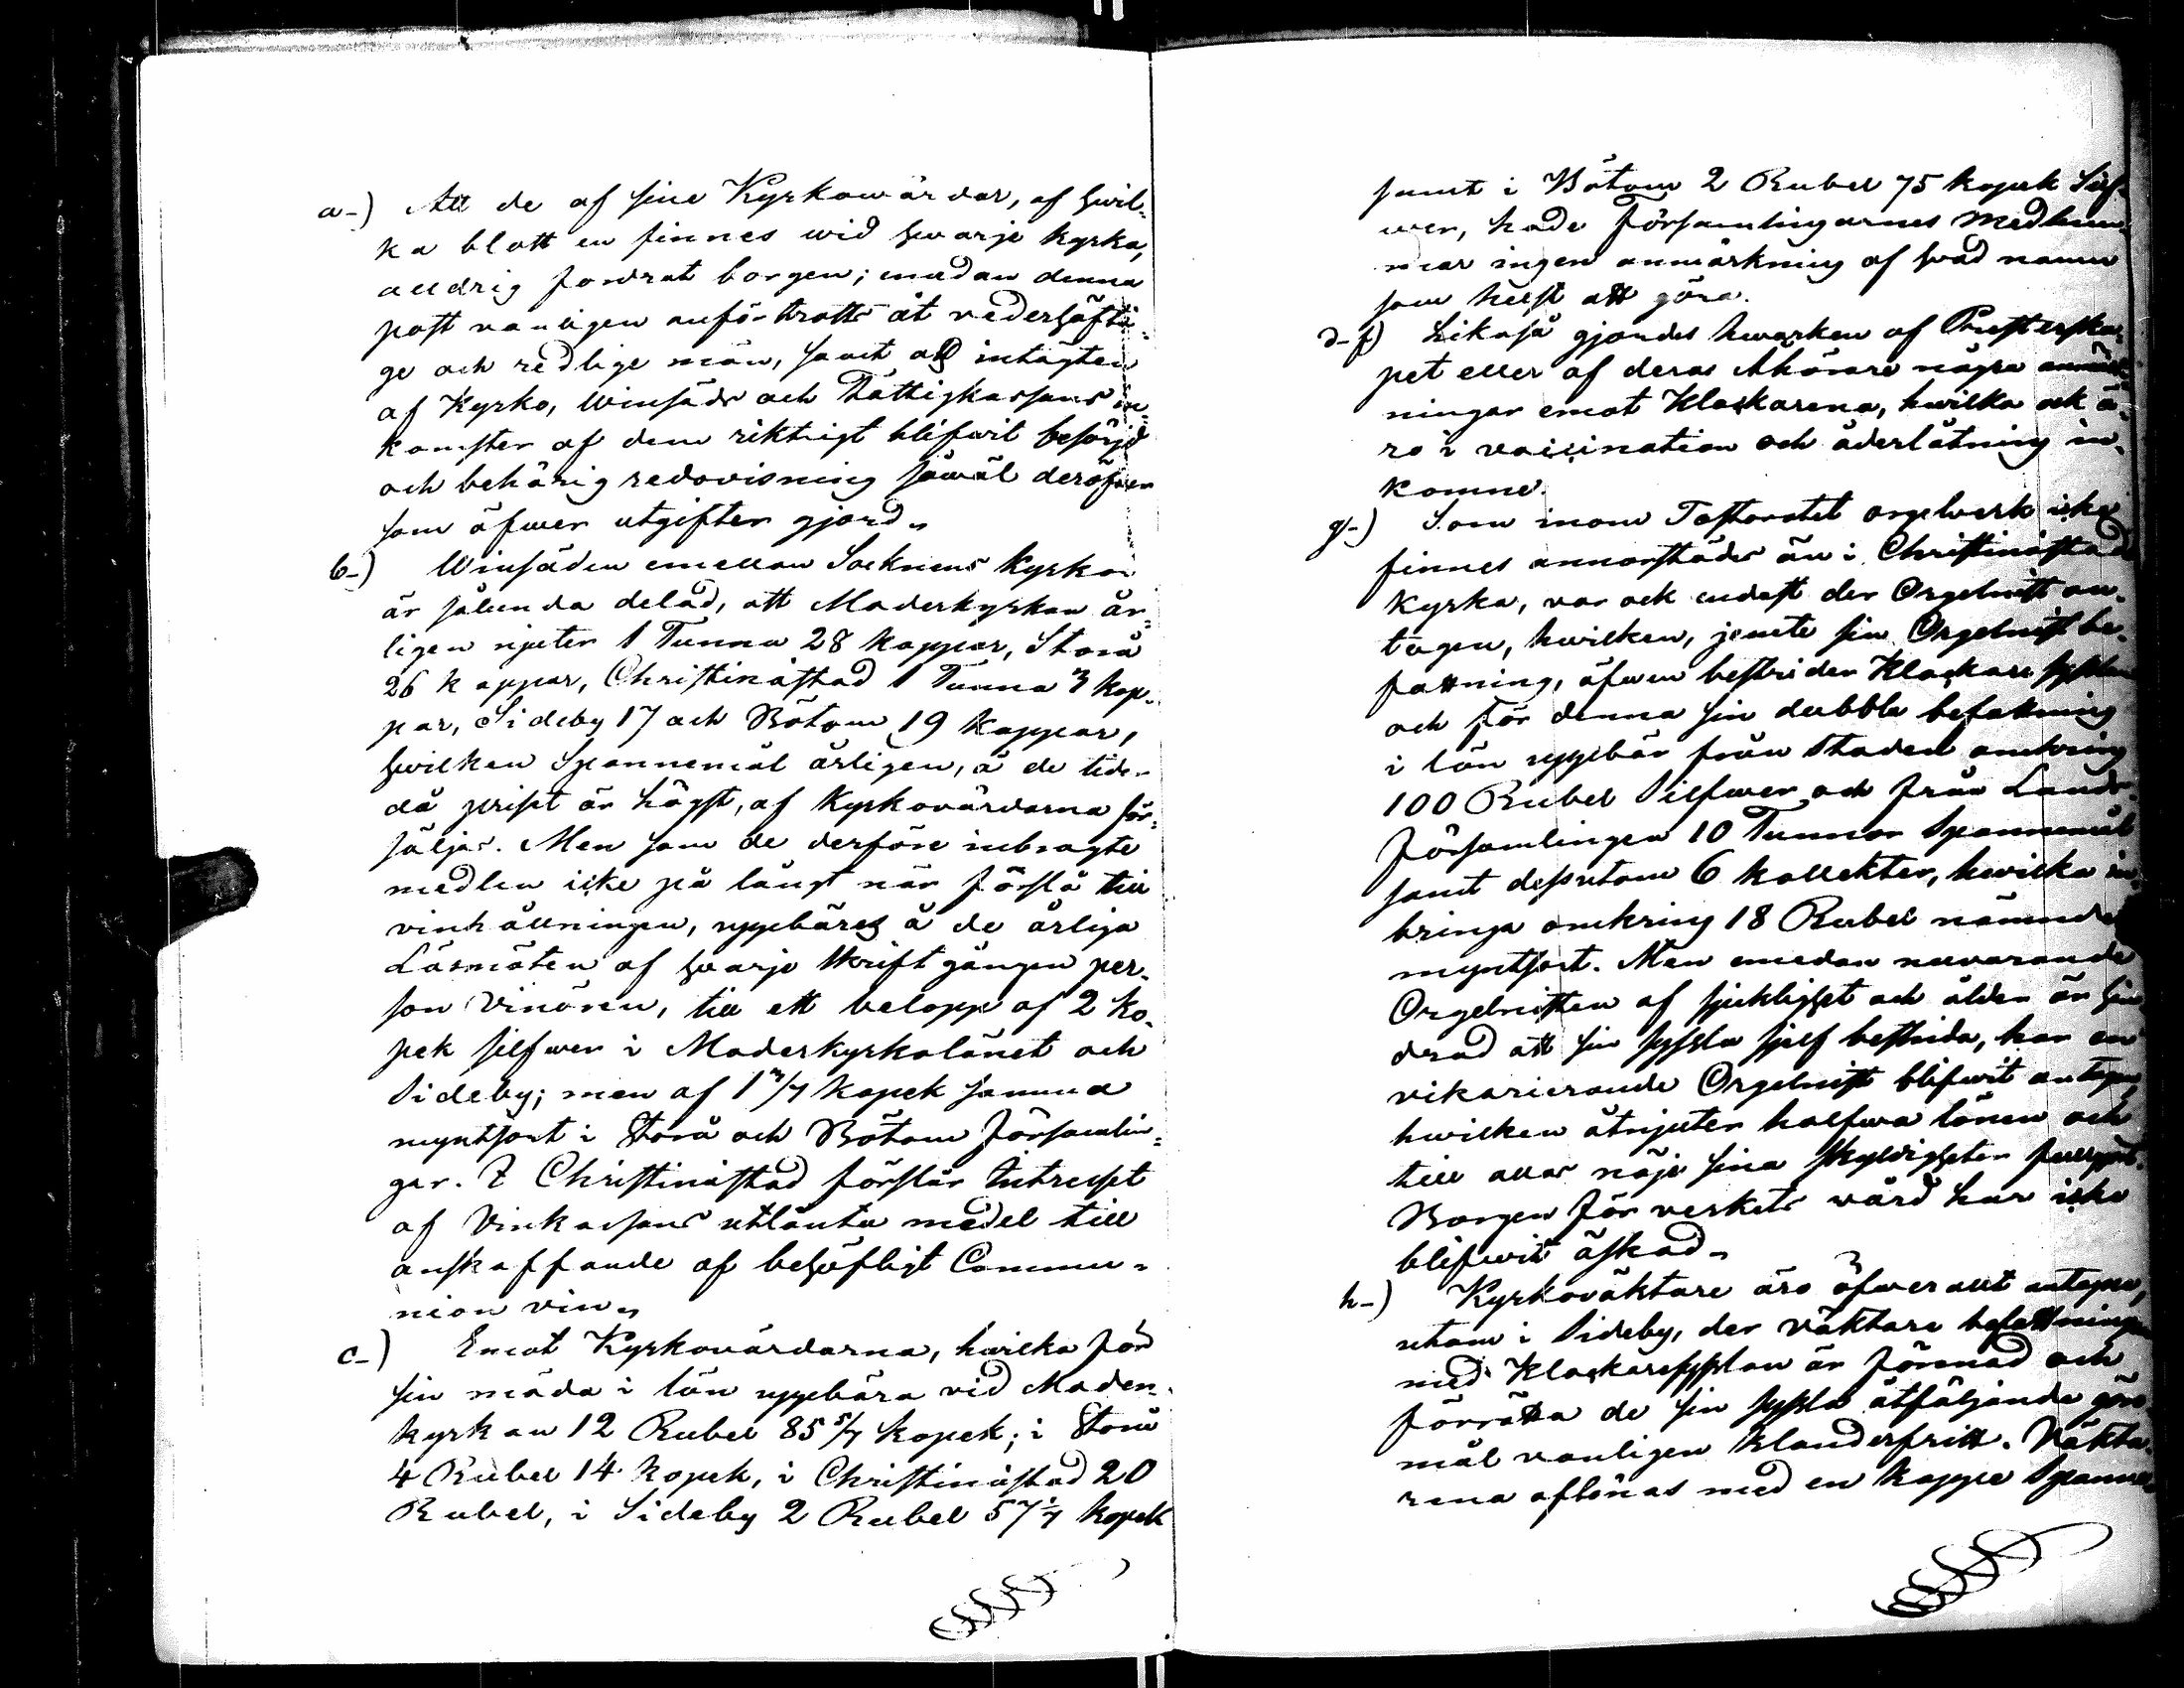 a_) Att de af sine Kyrkowärdar, af hvil-
ka blott en finnes wid hvarje kyrka,
alldrig fordrat borgen; emedan denna
post vanligen anförtrotts åt vederhäfti-
ge och redlige män, samt att intägten
af Kyrko, Winsäds och Fattigkassans in-
komster af dem riktigt blifwit besörjd
och behörig redovisning såwäl deröfwer
som öfwer utgifter gjord.
b_) Winsäden emellan Socknens Kyrkor
är sålunda delad, att Moderkyrkan år-
ligen njuter 1 Tunna 28 kappar, Storå
26 kappar, Christinæstad 1 Tunna 3 kap-
par, Sideby 17 och Bötom 19 kappar,
hvilken Spannemål årligen, å de tider
då priset är högst, af Kyrkovärdarna för-
säljes. Men som de derföre inbragte
medlen icke på långt när förslå till
vinhållningen, uppbäres å de årliga
Läsmöten af hvarje skriftgången per-
son Vinören, till ett belopp af 2 ko-
pek silfwer i Moderkyrkolänet och
Sideby; men af 1 3/7 kopek samma
myntsort i Storå och Bötom församlin-
gar. I Christinæstad förslår intresset
af Vinkassans utlånta medel till
anskaffande af behöfligt Commu-
nion vin.
c_) Emot Kyrkovärdarna, hwilka för
sin möda i lön uppbära vid Moder-
kyrkan 12 Rubel 85 5/7 kopek; i Storå
4 Rubel 14 kopek, i Christinæstad 20
Rubel, i Sideby 2 Rubel 57 1/7 kopek
samt i Bötom 2 Rubel 75 kopek Silf-
wer, hade församlingarnes medlem-
mar ingen anmärkning af hvad namn
som helst att göra.
d-f) Likaså gjordes hwarken af Presterska-
pet eller af deras Åhörare några anmärk-
ningar emot Klockarena, hwilka ock ä-
ro i vaccination och åderlåtning in-
komne.
g_) Som inom Pastoratet orgelverk icke
finnes annorstädes än i Christinæstads
Kyrka, var ock endast der Orgelnist an-
tagen, hwilken, jemte sin Orgelnist be-
fattning, äfwen bestrider Klockare sysslan
och för denna sin dubbla befattning
i lön uppbär från Staden omkring
100 Rubel Silfwer och från Lands-
församlingen 10 Tunnor Spannemål
samt dessutom 6 kollekter, hwilka in-
bringa omkring 18 Rubel nämnde
myntsort. Men emedan nuvarande
Orgelnisten af sjuklighet och ålder är hin-
drad att sin syssla sjelf bestrida, har en
vikarierande Orgelnist blifwit antagen,
hwilken åtnjuter halfwa lönen och
till allas nöje sina skyldigheter fullgjort.
Borgen för verkets wård har icke
blifwit äskad.
h_) Kyrkoväktare äro öfwerallt antagne,
utom i Sideby, der väktare befattningen
med Klockaresysslan är förenad och
förrätta de sin syssla åtföljande göro-
mål vanligen klanderfritt. Väkta-
rena aflönas med en kappe Spanne-